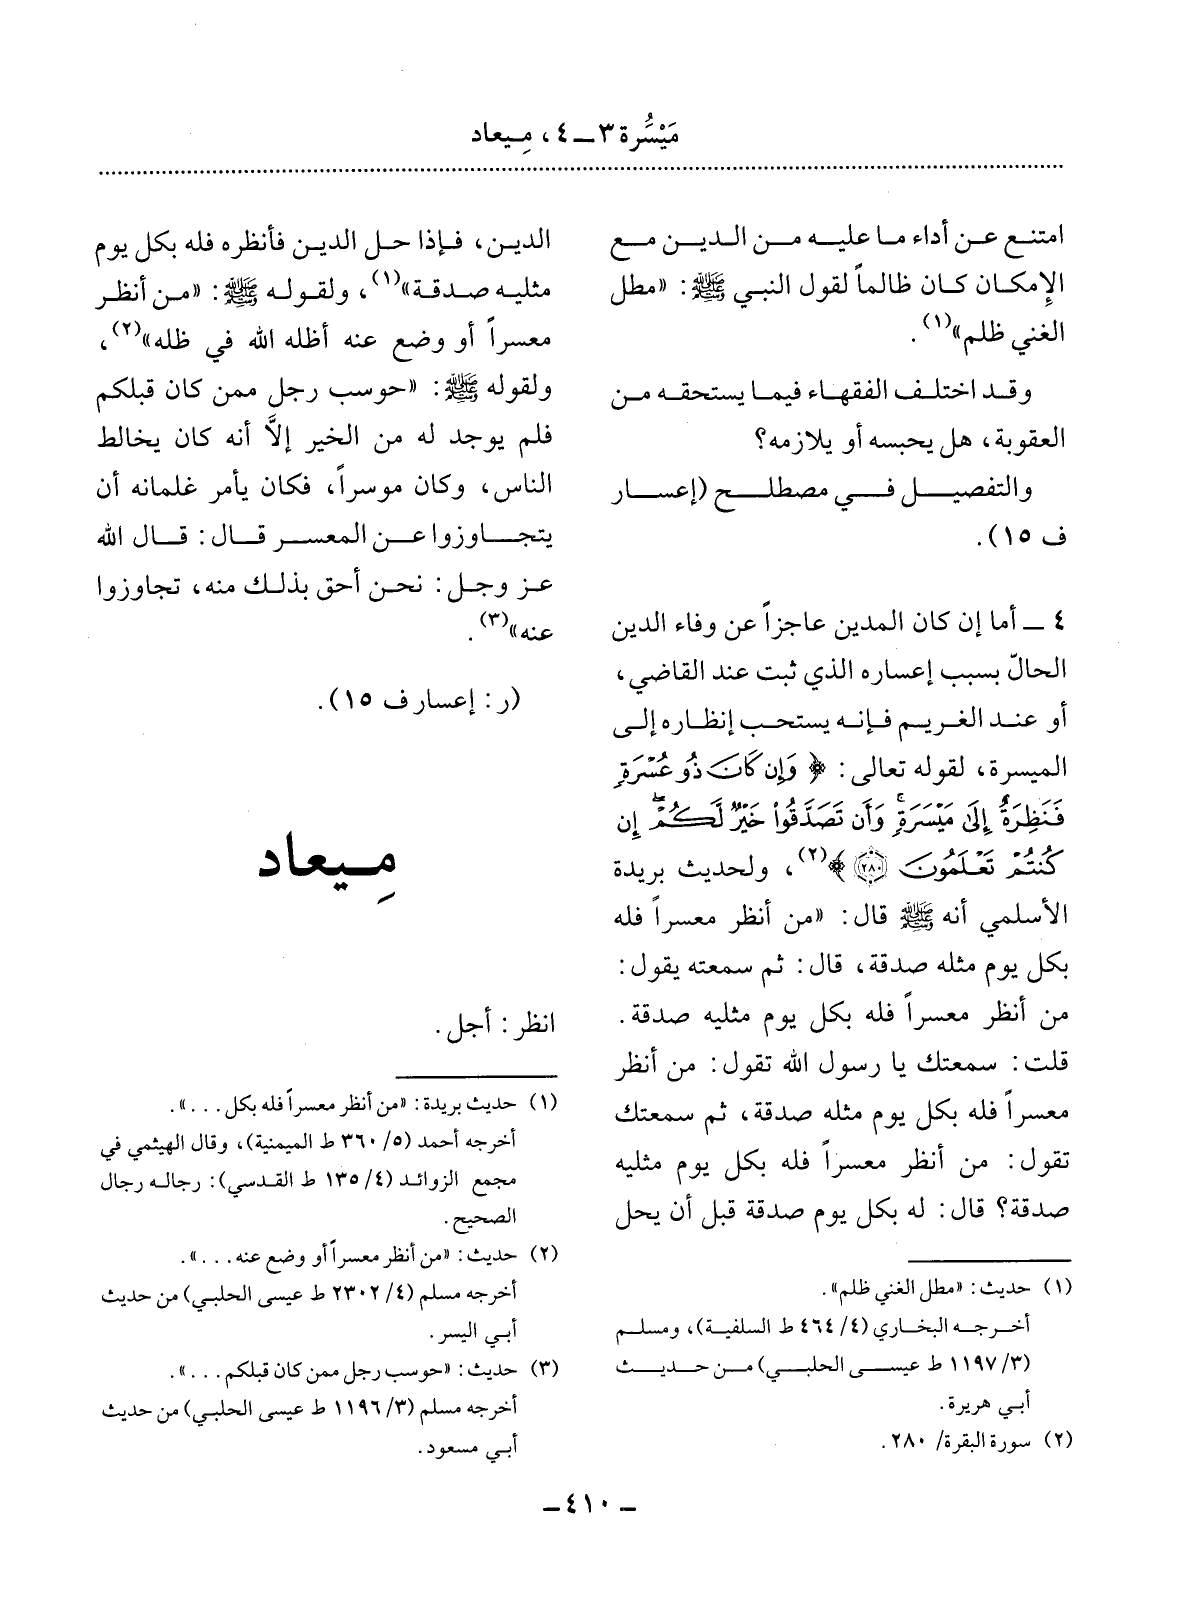 مَيْسُرة ٣ـ٤، مِيعاد
امتنع عن أداء ما عليه من الدين مع
الإمكان كان ظالماً لقول النبي ﷺ: «مطل
الغني ظلم»(١).
وقد اختلف الفقهاء فيما يستحقه من
العقوبة، هل يحبسه أو يلازمه؟
والتفصيل في مصطلح (إعسار
ف ١٥).
٤ ـ أما إن كان المدين عاجزاً عن وفاء الدين
الحالّ بسبب إعساره الذي ثبت عند القاضي،
أو عند الغريم فإنه يستحب إنظاره إلى
الميسرة، لقوله تعالى: ﴿وَإِن كَانَ ذُو عُسْرَةٍ
فَنَظِرَةٌ إِلَىٰ مَيْسَرَةٍۚ وَأَن تَصَدَّقُوا۟ خَيْرٌ لَّكُمْۖ إِن
كُنتُمْ تَعْلَمُونَ ٢٨٠﴾(٢)، ولحديث بريدة
الأسلمي أنه ﷺ قال: «من أنظر معسراً فله
بكل يوم مثله صدقة، قال: ثم سمعته يقول:
من أنظر معسراً فله بكل يوم مثليه صدقة.
قلت: سمعتك يا رسول الله تقول: من أنظر
معسراً فله بكل يوم مثله صدقة، ثم سمعتك
تقول: من أنظر معسراً فله بكل يوم مثليه
صدقة؟ قال: له بكل يوم صدقة قبل أن يحل
(١) حديث: «مطل الغني ظلم».
أخرجه البخاري (٤/ ٤٦٤ ط السلفية)، ومسلم
(٣/ ١١٩٧ ط عيسى الحلبي) من حديث
أبي هريرة.
(٢) سورة البقرة/ ٢٨٠.
الدين، فإذا حل الدين فأنظره فله بكل يوم
مثليه صدقة»(١)، ولقوله ﷺ: «من أنظر
معسراً أو وضع عنه أظله الله في ظله»(٢)،
ولقوله ﷺ: «حوسب رجل ممن كان قبلكم
فلم يوجد له من الخير إلاَّ أنه كان يخالط
الناس، وكان موسراً، فكان يأمر غلمانه أن
يتجاوزوا عن المعسر قال: قال الله
عز وجل: نحن أحق بذلك منه، تجاوزوا
عنه»(٣).
(ر: إعسار ف ١٥).
مِيعاد
انظر: أجل.
(١) حديث بريدة: «من أنظر معسراً فله بكل...».
أخرجه أحمد (٥/ ٣٦٠ ط الميمنية)، وقال الهيثمي في
مجمع الزوائد (٤/ ١٣٥ ط القدسي): رجاله رجال
الصحيح.
(٢) حديث: «من أنظر معسراً أو وضع عنه...».
أخرجه مسلم (٤/ ٢٣٠٢ ط عيسى الحلبي) من حديث
أبي اليسر.
(٣) حديث: «حوسب رجل ممن كان قبلكم...».
أخرجه مسلم (٣/ ١١٩٦ ط عيسى الحلبي) من حديث
أبي مسعود.
ـ ٤١٠ ـ